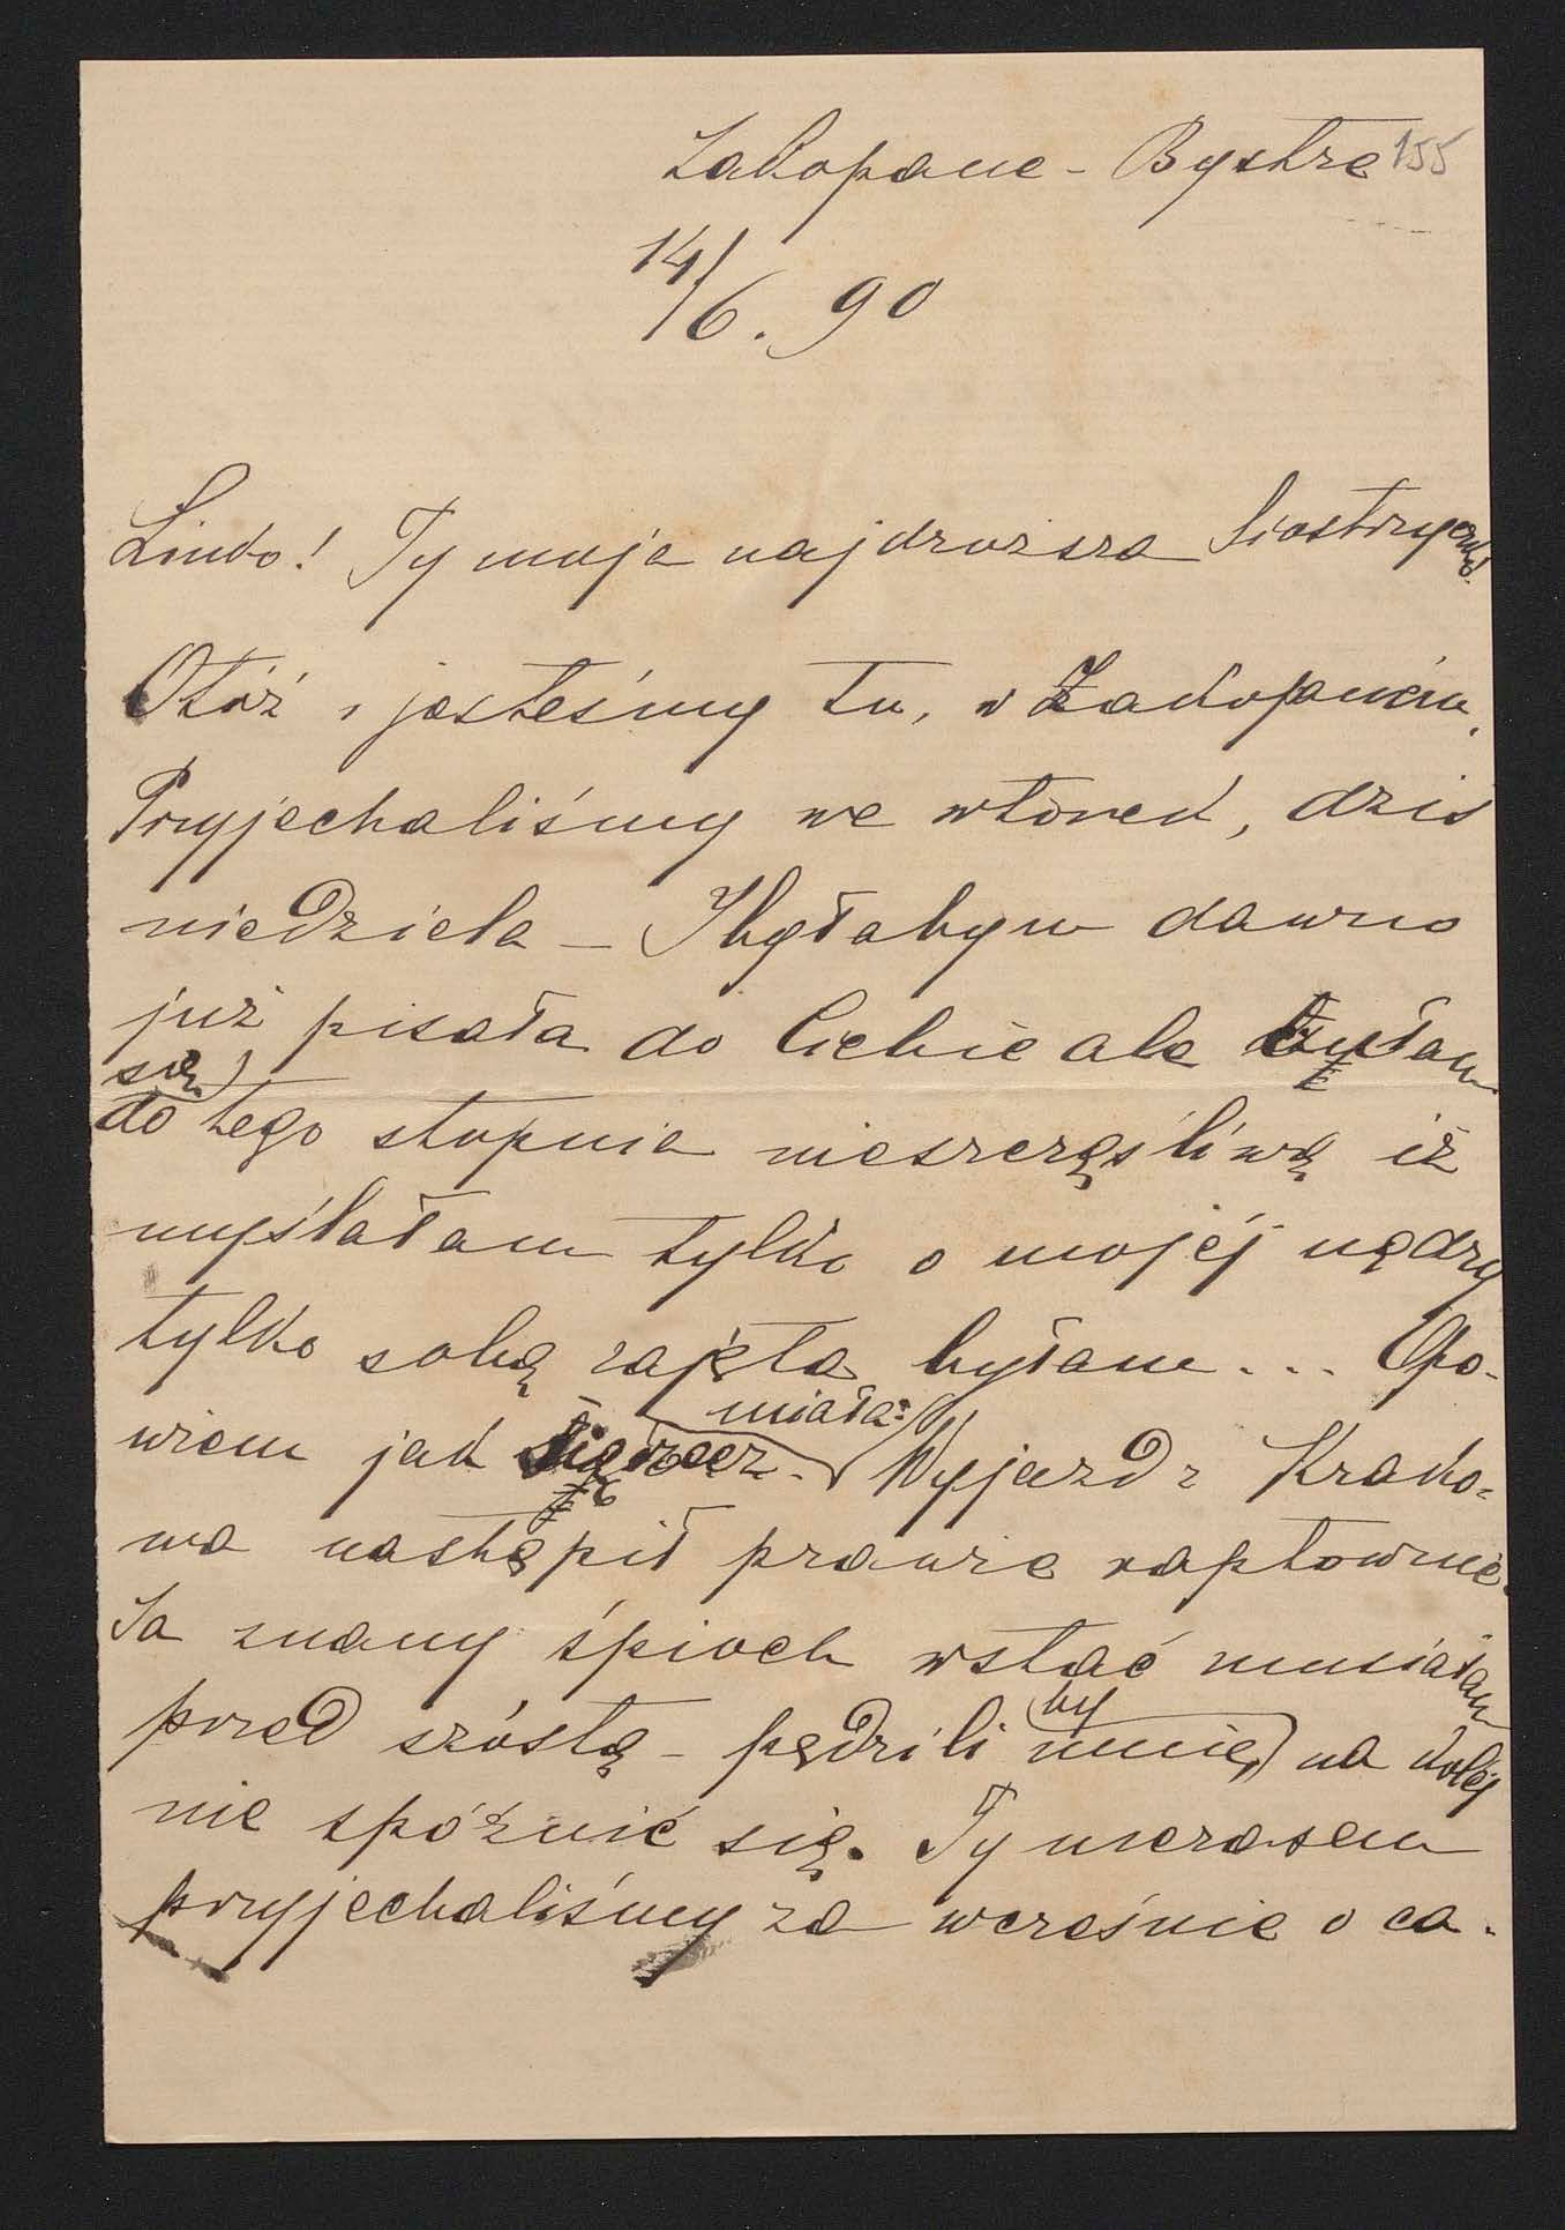 Zakopane - Bystre 155
14/6. 90
Lindo! Ty moja najdroższa Siostrzyczko!
Otóż i jesteśmy tu, w Zakopaném.
Przyjechaliśmy we wtorek, dziś
niedziela – I byłabym dawno
już pisała do Ciebie ale czułam
się
do tego stopnia nieszczęśliwą iż
myślałam tylko o mojéj nędzy
tylko sobą zajęta byłam... Opo-
miała:
wiem jak się rzecz. Wyjazd z Krako=
wa nastąpił prawie raptownie.
Ja znany śpioch wstać musiałam
przed szóstą - pędzili mnie, na koléj
by
nie spóźnić się. Tymczasem
przyjechaliśmy za wcześnie o ca-